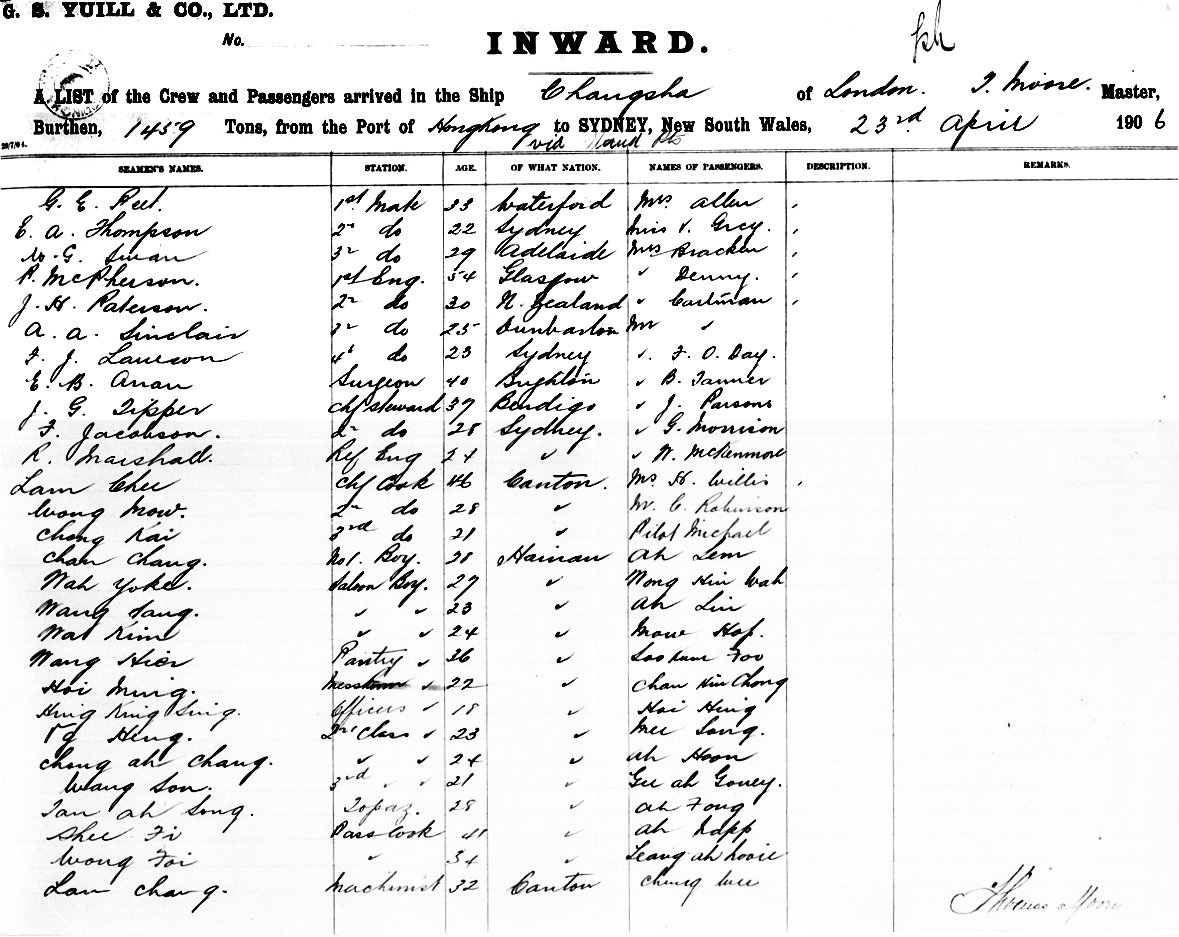 G. S. YUILL & CO., LTD.
No.
INWARD.
A LIST of the Crew and Passengers arrived in the Ship Changsha of London. T. Moore. Master,
Burthen, 1459 Tons, from the Port of Hongkong to SYDNEY, New South Wales, 23rd April 1906
via Pts
SEAMEN'S NAMES. STATION. AGE. OF WHAT NATION. NAMES OF PASSENGERS. DESCRIPTION. REMARKS.
G. E. 1st Mate 33 Waterford Mrs Allen
E. A. Thompson 2nd do 22 Sydney Miss V. Grey.
G. Swan 3rd do 29 Adelaide Mrs Bracken
P. McPherson. 1st Eng. 54 Glasgow " Denny.
J. H. Paterson. 2nd do 30 N. Zealand "
A. A. Sinclair 3rd do 25 Dunbarton Mr "
F. J. Laweson 4th do 23 Sydney " F. O. Day.
E. B. Surgeon 40 Brighton " B. Tanner
J. G. Tipper Chf Steward 37 Bendigo " J. Parsons
F. Jacobson. 2nd do 28 Sydney. " G. Morrison
R. Marshall. Ref Eng 24 " " W. McKenmore
Lam Chee Chf Cook 46 Canton. H. Willis
Wong Mow. 2nd do 28 " Mr. C. Robinson
Chong Kai 3rd do 21 " Pilot Michael
Cham Chang. No 1. Boy. 28 Hainan Ah Lem
Wah Yoke. Saloon Boy. 27 " Wong Hin Wah
Wang Sang. " " 23 " Ah Lin
Wat Kim " " 24 " Mow Hop.
Wang Hier Pantry " 36 " Foo
Hoi Ming. " 22 " Chan Kin Chong
Hing King Sing. Officers " 18 " Hoi Hing
Heng. 2nd Class " 23 " Mee Song.
Chong Ah Chang. " " 24 " Ah Hoon
Wang Son. 3rd " " 21 " Gee Ah Gouey.
Tan Ah Song. Topaz. 28 " Ah Fong
Shee Fi Pass Cook 41 " Ah Napp
Wong Foi " 34 " Leang Ah
Lam Chang. Machinist 32 Canton Chung
Thomas Moore